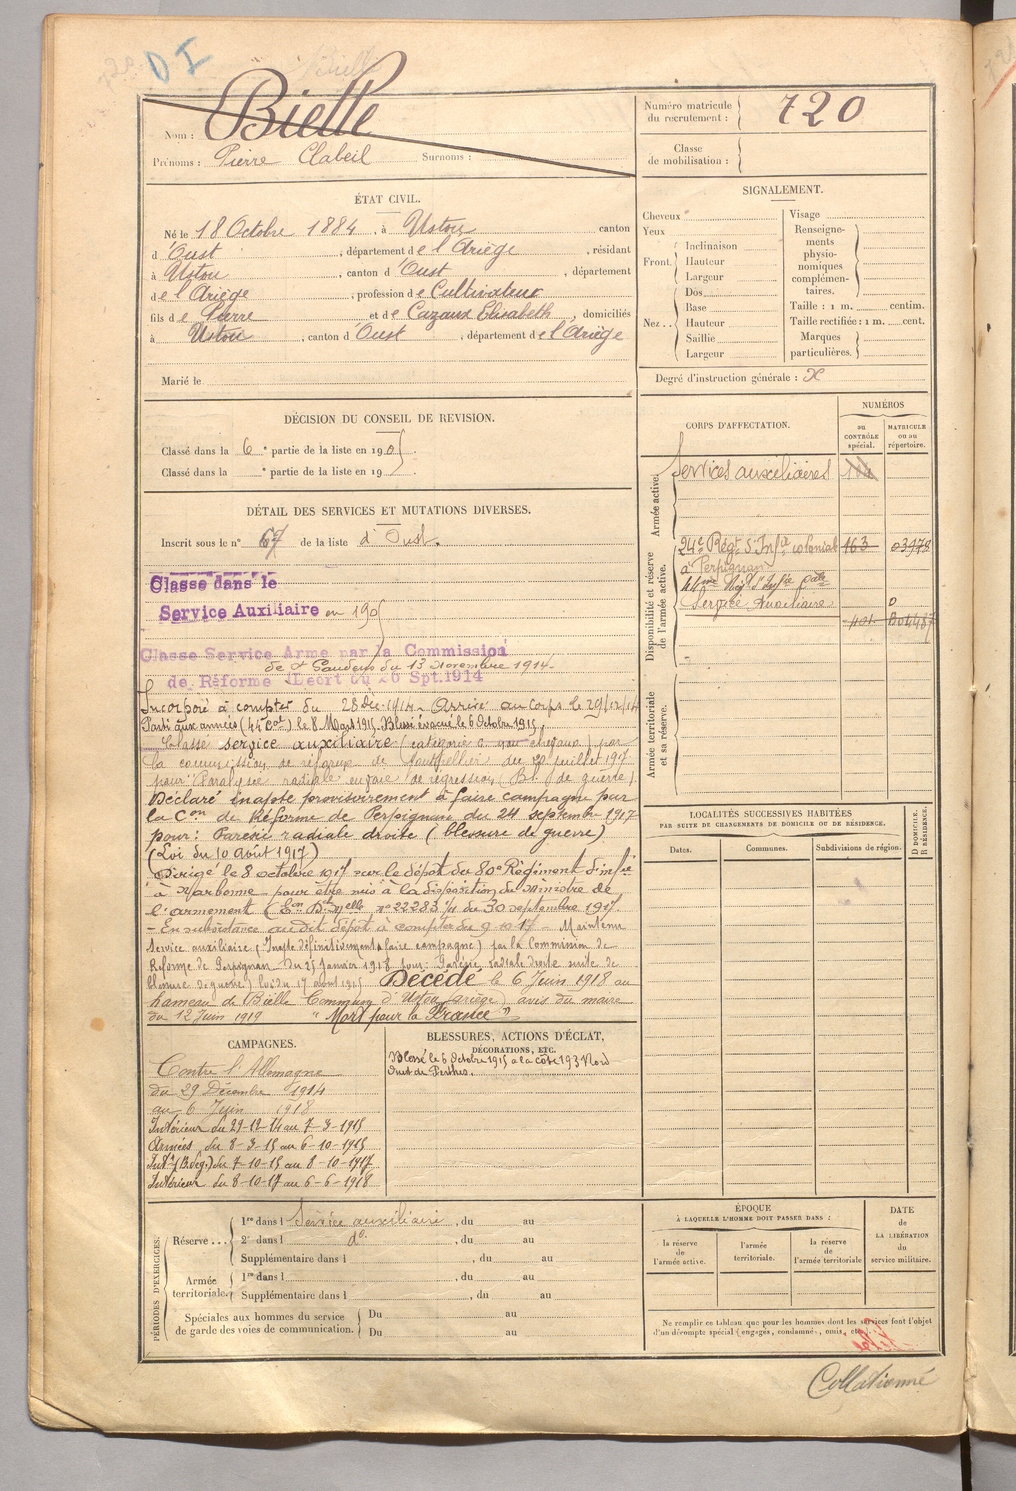 D I
Nom : Bielle
Prénoms : Pierre Clabeil Surnoms :
Numéro matricule
du recrutement : 720
Classe
de mobilisation :
ÉTAT CIVIL.
Né le 18 Octobre 1884, à Ustou canton
d'Oust, département de l'Ariège, résidant
à Ustou, canton d'Oust, département
de l'Ariège, profession de Cultivateur
fils de Pierre et de Cazaux Elisabeth, domiciliés
à Ustou, canton d'Oust, département de l'Ariège
Marié le
SIGNALEMENT.
Cheveux
Yeux
Front. Inclinaison
Hauteur
Largeur
Nez .. Dos
Base
Hauteur
Saillie
Largeur
Visage
Renseigne-
ments
physio-
nomiques
complémen-
taires.
Taille : 1 m. centim.
Taille rectifiée : 1 m. cent.
Marques
particulières.
Degré d'instruction générale : X
DÉCISION DU CONSEIL DE REVISION.
Classé dans la 6e partie de la liste en 1905.
Classé dans la e partie de la liste en 19 .
DÉTAIL DES SERVICES ET MUTATIONS DIVERSES.
Inscrit sous le n° 67 de la liste d'Oust.
Classé dans le
Service Auxiliaire en 1905
Classé Service Armé par la Commission
de St Gaudens du 13 Novembre 1914
de Réforme (Décret du 26 Spt. 1914
Incorporé à compter du 28 Déc. 1914. Arrivé au Corps le 29/12/14
Parti aux armées (44e Col) le 8 Mars 1915. Blessé évacué le 6 Octobre 1915.
Classé service auxiliaire (catégorie C par
la commission de réforme de Montpellier du 20 juillet 1917
pour: Paralysie radiale en voie de régression (Bl. de guerre)
Déclaré inapte provisoirement à faire campagne par
la Con de Réforme de Perpignan du 24 septembre 1917
pour: Parésie radiale droite (blessure de guerre)
(Loi du 10 Août 1917)
Dirigé le 8 octobre 1917 sur le dépôt du 80e Régiment d'infie
à Narbonne pour être mis à la disposition du Ministre de
l'armement n° 22283 1/11 du 30 septembre 1917.
- En subsistance audit dépôt à compter du 9-10-17 - Maintenu
Service auxiliaire (Inapte définitivement à faire campagne) par la Commission de
Réforme de Perpignan du 25 Janvier 1918 pour: Parésie radiale droite suite de
blessure de guerre) loi du 17 août 1915 Décédé le 6 Juin 1918 au
hameau de Bielle Commune d'Ustou (ariège) avis du maire
du 12 Juin 1919 "Mort pour la France"
CORPS D'AFFECTATION.
NUMÉROS
au
CONTRÔLE
spécial.
MATRICULE
ou au
répertoire.
Armée active.
Services auxiliaires
Disponibilité et réserve
de l'armée active.
24e Régt d'Infie coloniale 163 03978
à Perpignan
44me Régt d'Infie Cale
Service Auxiliaire
401
Armée territoriale
et sa réserve.
LOCALITÉS SUCCESSIVES HABITÉES
PAR SUITE DE CHANGEMENTS DE DOMICILE OU DE RÉSIDENCE.
Dates.
Communes.
Subdivisions de région.
D DOMICILE.
R RÉSIDENCE.
CAMPAGNES.
Contre l'Allemagne
du 29 Décembre 1914
au 6 Juin 1918
Intérieur du 29-12-14 au 7-3-1915
Armées du 8-3-15 au 6-10-1915
Intr (B. de g.) du 7-10-15 au 8-10-1917
Intérieur du 8-10-17 au 6-6-1918
BLESSURES, ACTIONS D'ÉCLAT,
DÉCORATIONS, ETC.
Blessé le 6 Octobre 1915 à la côte 193 Nord
Ouest de Perthes.
PÉRIODES D'EXERCICES.
Réserve ... 1re dans l Service auxiliaire, du au
2e dans l do, du au
Supplémentaire dans l , du au
Armée
territoriale. 1re dans l , du au
Supplémentaire dans l , du au
Spéciales aux hommes du service
de garde des voies de communication.
Du au
Du au
ÉPOQUE
À LAQUELLE L'HOMME DOIT PASSER DANS :
la réserve
de
l'armée active.
l'armée
territoriale.
la réserve
de
l'armée territoriale
DATE
de
LA LIBÉRATION
du
service militaire.
Ne remplir ce tableau que pour les hommes dont les services font l'objet
d'un décompte spécial (engagés, condamnés, omis, etc.).
Collationné